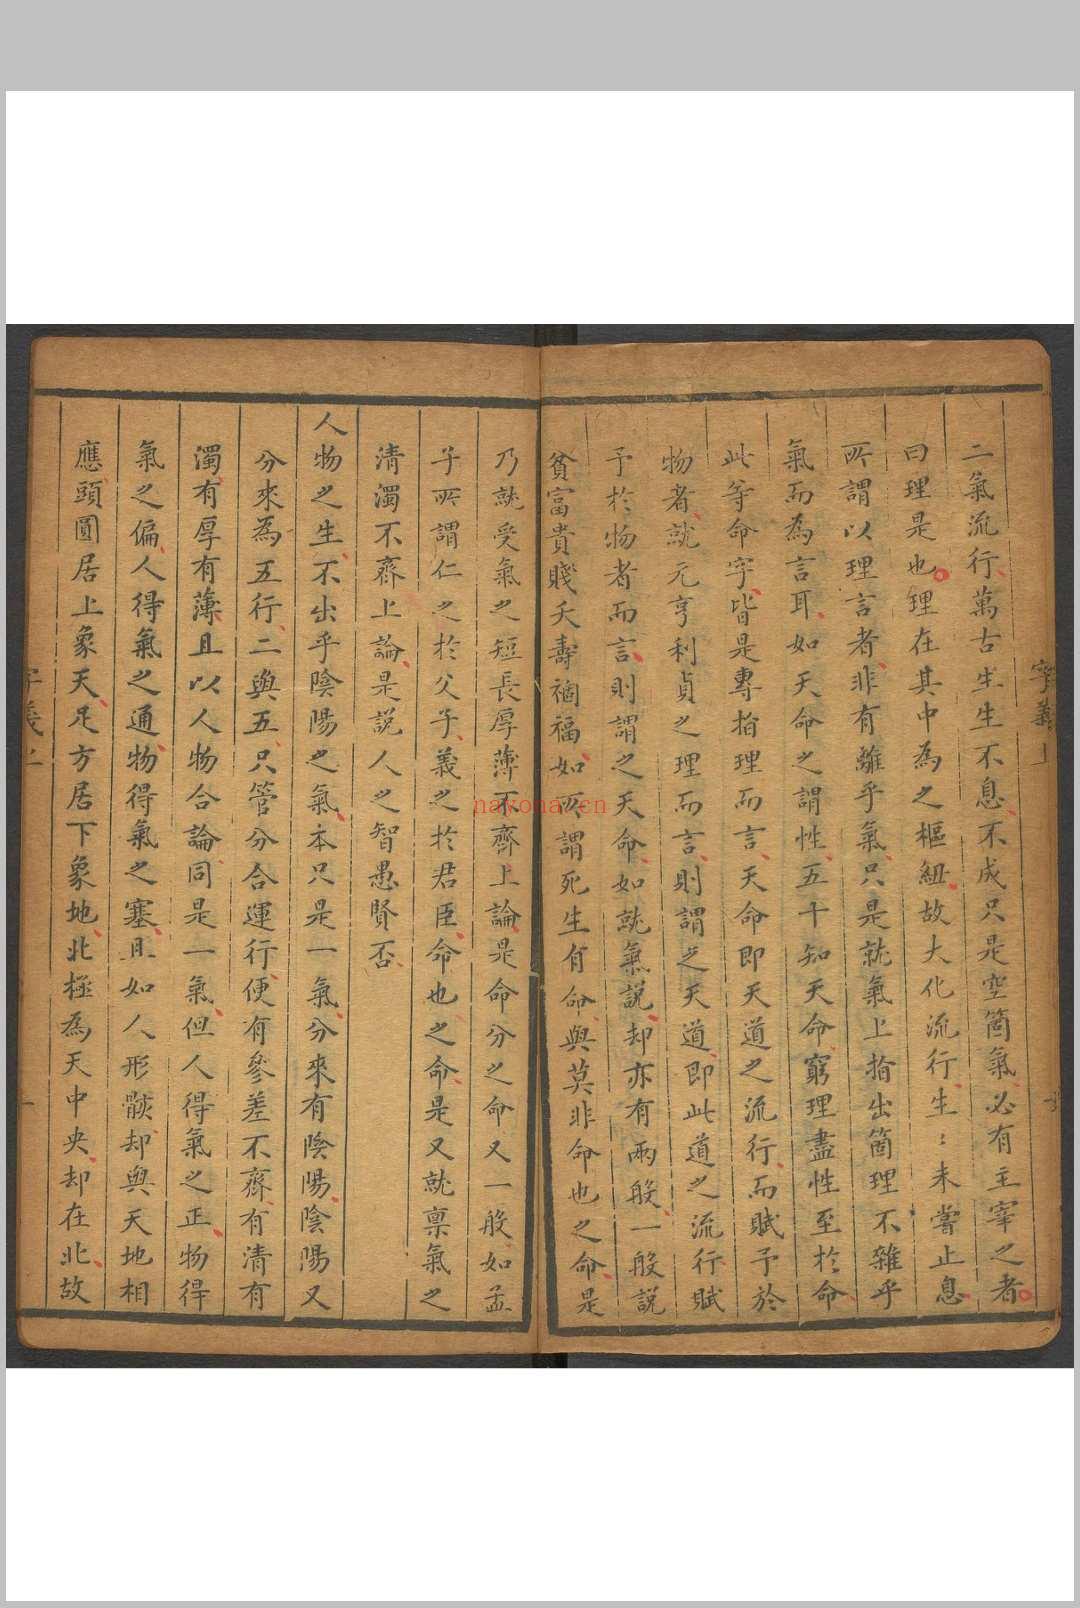 字義上
二氣流行萬古生生不息不成只是空箇氣必有主宰之者
曰理是也理在其中為之樞紐故大化流行生〻未嘗止息
所謂以理言者非有離乎氣只是就氣上指出箇理不雜乎
氣而為言耳如天命之謂性五十知天命窮理盡性至於命
此等命字皆是專指理而言天命即天道之流行而賦予於
物者就元亨利貞之理而言則謂之天道即此道之流行賦
予於物者而言則謂之天命如就氣說却亦有兩般一般説
貧富貴賤夭壽禍福如所謂死生有命與莫非命也之命是
乃就受氣之短長厚薄不齊上論是命分之命又一般如孟
子所謂仁之於父子義之於君臣命也之命是又就禀氣之
清濁不齊上論是說人之智愚賢否
人物之生不出乎陰陽之氣本只是一氣分來有陰陽陰陽又
分來為五行二與五只管分合運行便有參差不齊有清有
濁有厚有薄且以人物合論同是一氣但人得氣之正物得
氣之偏人得氣之通物得氣之塞且如人形骸却與天地相
應頭圓居上象天足方居下象地北極為天中央却在北故
nayona.cn